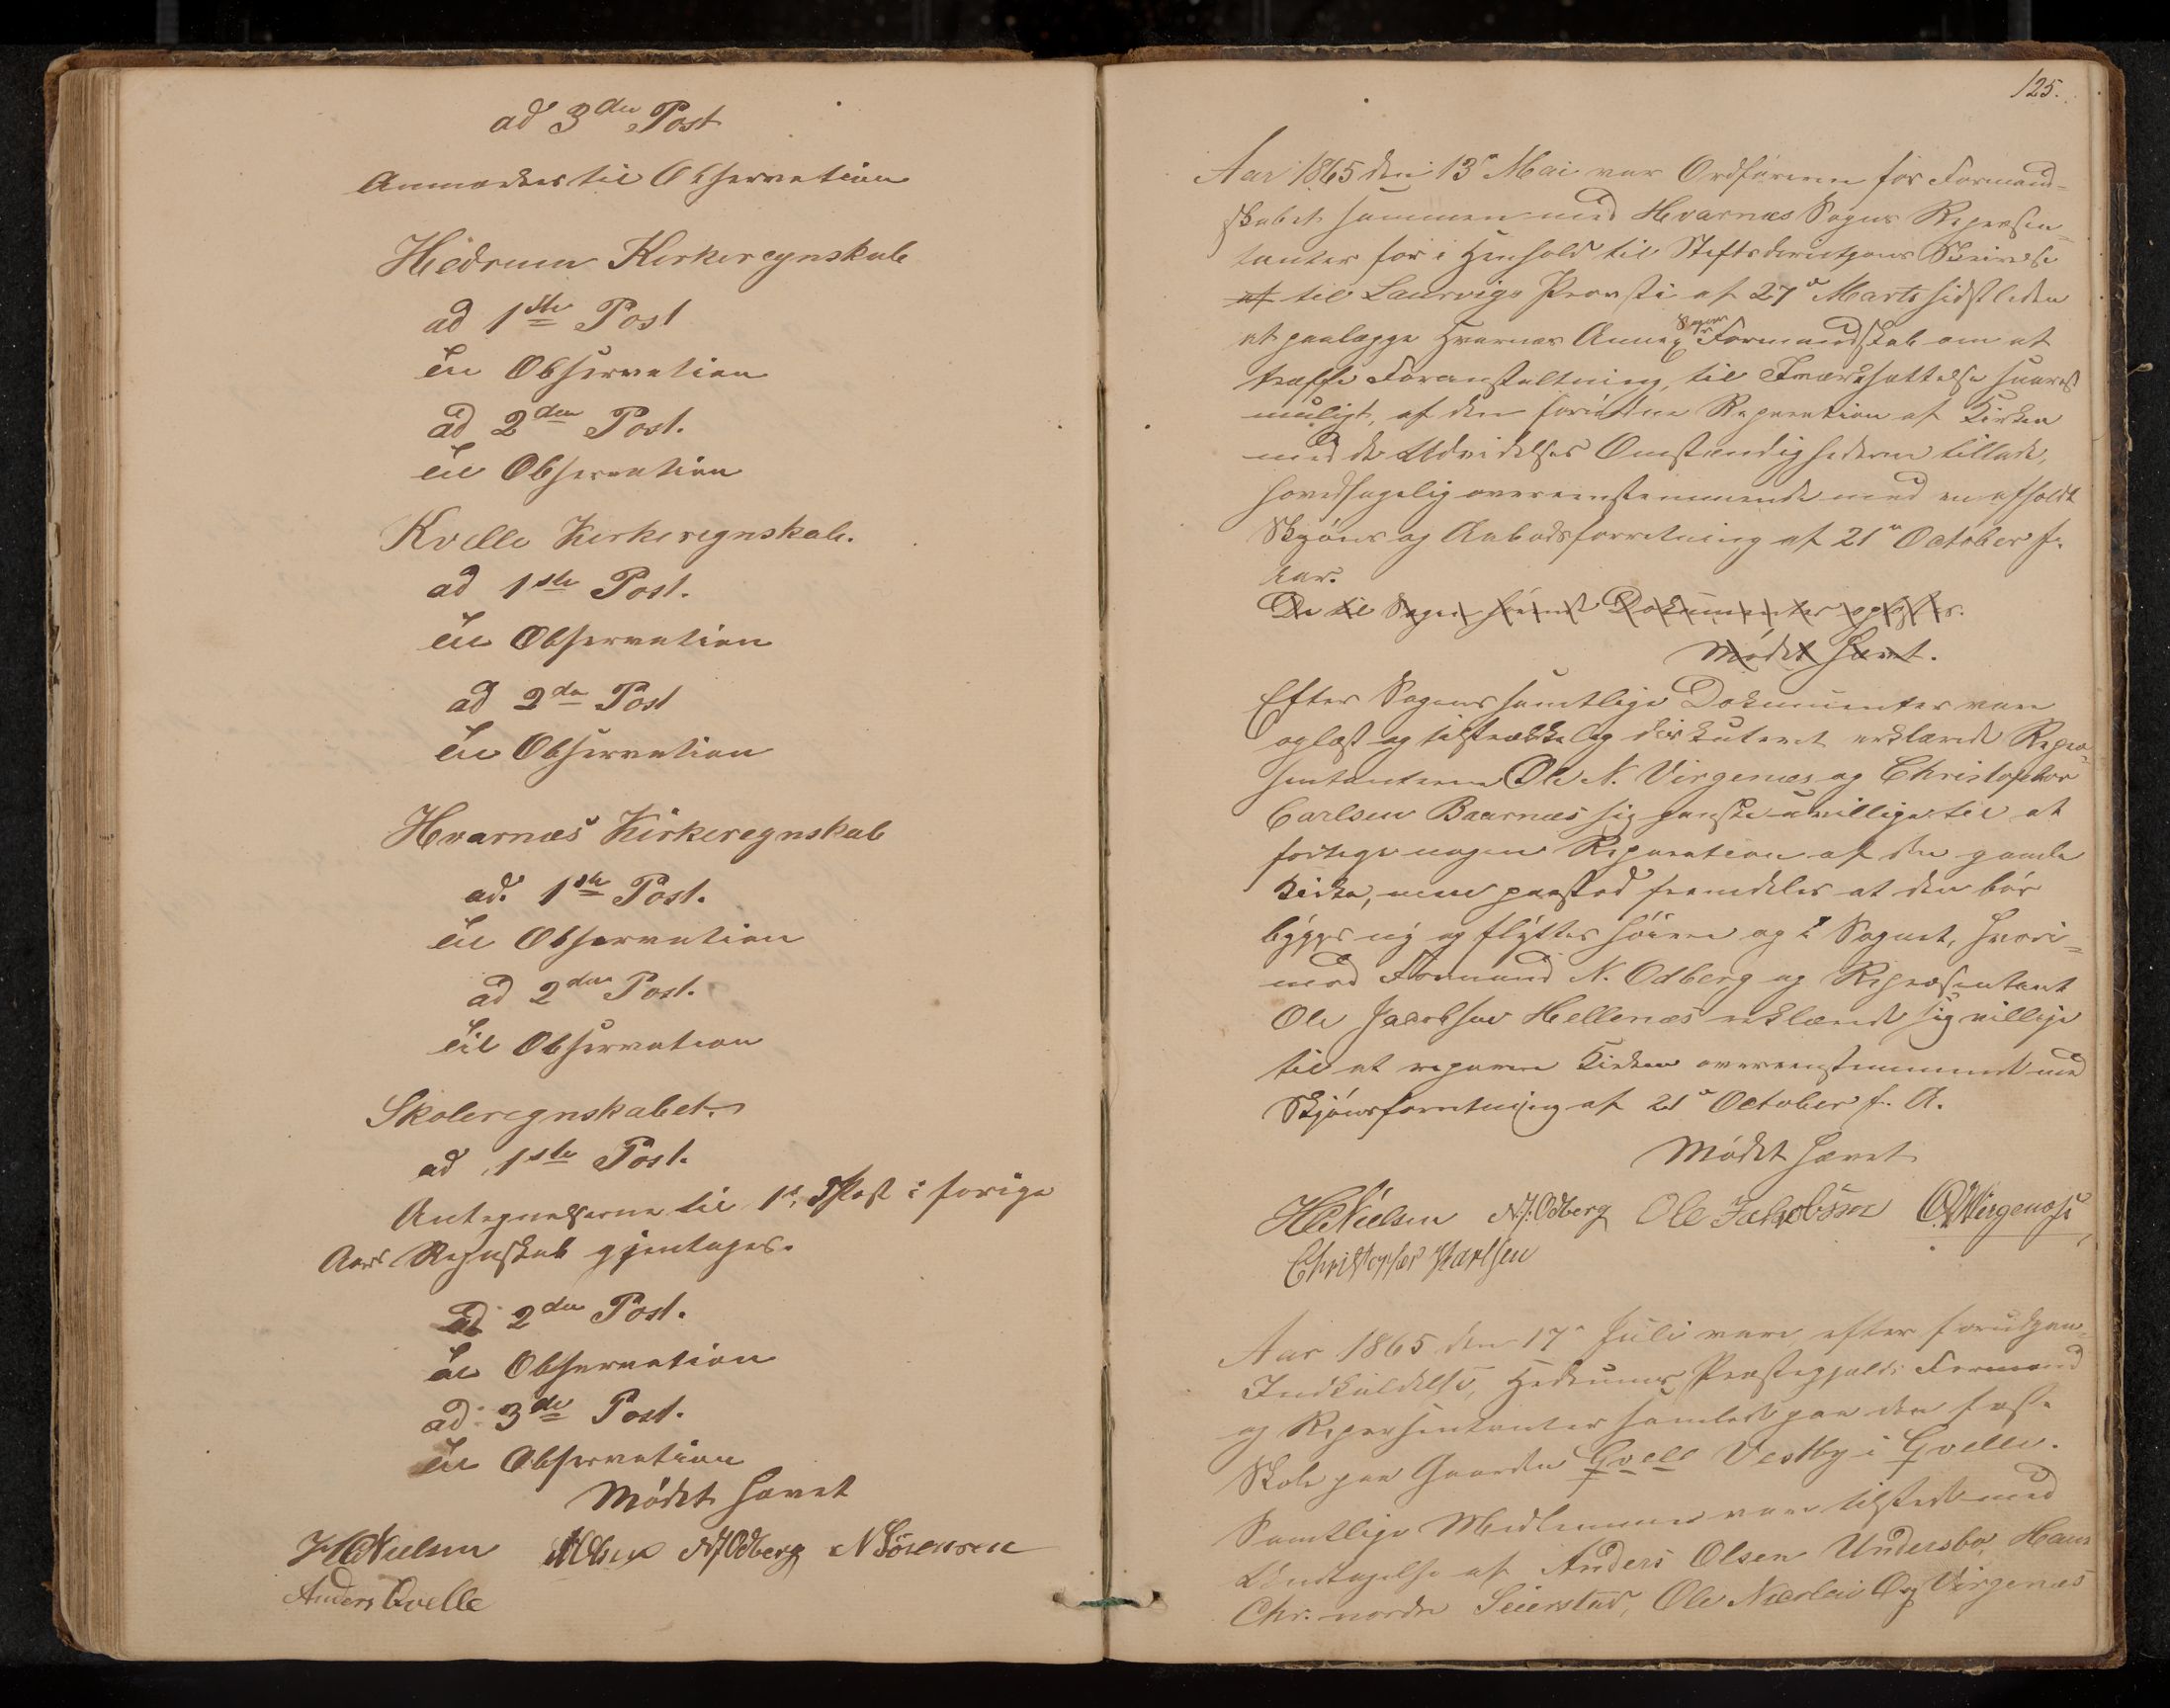 ad 3die Post
Anmodes til Observation
Hedrum Kirkeregnskab
ad 1ste Post
til Observation
ad 2den Post.
til Observation
Kvelle Kirkeregnskab.
ad 1ste Post.
til Observation
ad 2den Post
til Observation
Hvarnæs Kirkeregnskab
ad. 1ste Post.
til Observation
ad 2den Post.
til Observation
Skoleregnskabet.
ad 1ste Post.
Antegnelserne til 1ste Post i forige
Aars Regnskab gjentages.
ad 2den Post.
til Observation
ad 3die Post.
til Observation
Mødet hævet
HCNielsen NJOdberg N Sørensen
Anders Qvelle
125.
Aar 1865 den 13de Mai var Ordføreren for Formand-
skabet sammen med Hvarnæs Sogns Repræsen-
tanter for i Henhold til Stiftsdirektionens Skrivelse
af til Laurvigs Provsti af 27de Marts sidstleden
at paalægge Hvarnæs Annex Sogns Formandskab om at
træffe Foranstaltning til Iværksættelse snarest
muligt, af den fornødne Reparation af Kirken
med de Udvidelser Omstændighederne tillade,
hovedsagelig overeensstemmende med en afholdt
Skjøns og Aabodsforretning af 21de October f.
Aar.
De til Sagen hørende Dokumenter oplæstes.
Mødet hævet.
Efter Sagens samtlige Dokumenter vare
oplæst og tilstrækkelig diskuteret erklærede Repræ-
sentanterne Ole N. Virgenæs og Christopher
Carlsen Baarnæs sig ganske uvillige til at
foretage nogen Reparation af den gamle
Kirke, men paastod fremdeles at den bør
bygges ny og flyttes høiere op i Sognet, hvori-
mod Formand N. Odberg og Repræsentant
Ole Jacobsen Hellenæs erklærede sig villige
til at reparere Kirken overeensstemmende med
Skjønsforretning af 21de October f. A.
Mødet hævet
HCNielsen NJ.Odberg Ole Jakobsen ONVirgenæs
Christopher Karlsen
Aar 1865 den 17de Juli vare efter forudgaaende
Indkaldelse, Hedrums Præstegjelds Formænd
og Repræsentanter samlede paa den faste
Skole paa Gaarden Qvelle Vestby i Qvelle.
Samtlige Medlemmer vare tilstede med
Undtagelse af Anders Olsen Undersbo, Hans
Chr. nordre Seierstad, Ole Nicolai Virgenæs